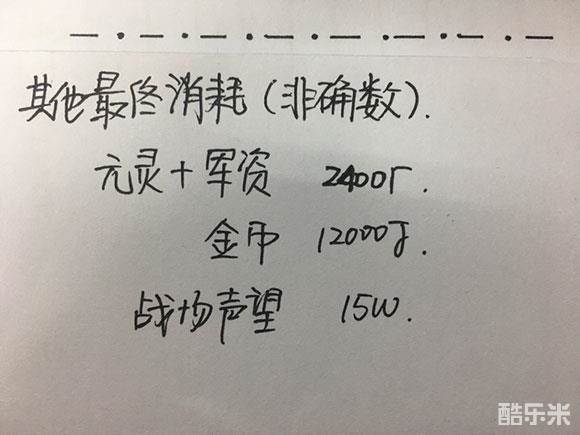 其他最终消耗(非确数).
元灵+军资 2400r.
金币 12000J.
战场声望 15W.
酷乐米